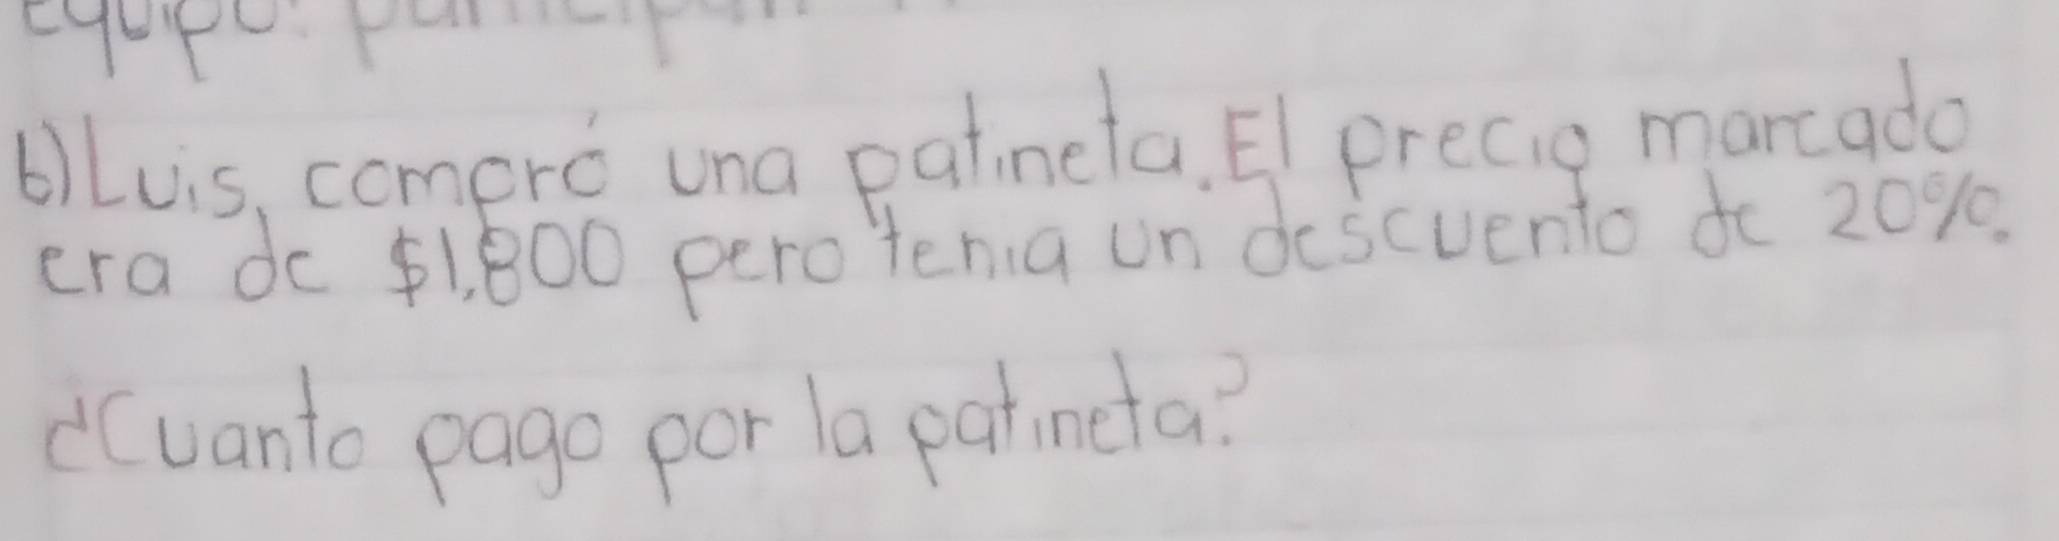 equipo.
6) Luis, compró una patineta. El precio marcado
era de $1,800 pero tenia un descuento de 20%.
¿Cuanto pago por la patineta?